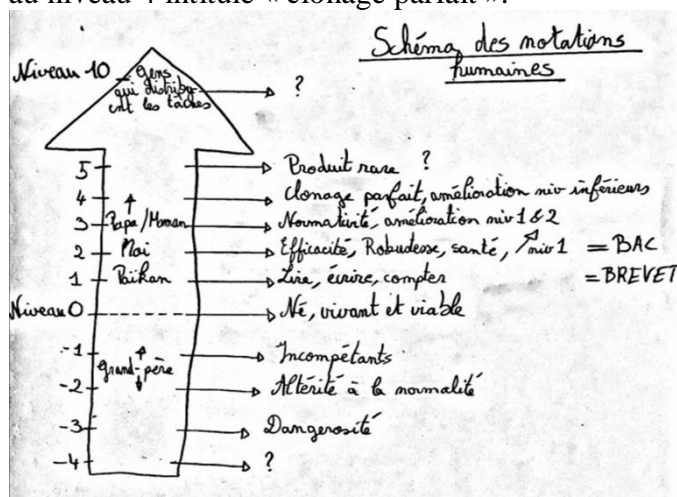 au niveau 4 intitulé « clonage parfait ».
Schéma des notations
humaines
Niveau 10 Gens
qui distribu-
ent les tâches → ?
5 → Produit rare ?
4 → Clonage parfait, amélioration niv inférieurs
3 Papa/Maman → Normativité, amélioration niv 1 & 2
2 Moi → Efficacité, Robustesse, santé, ↗ niv 1 = BAC
1 Païkan → Lire, écrire, compter = BREVET
Niveau 0 → Né, vivant et viable
-1 → Incompétants
Grand-père
-2 → Altérité à la normalité
-3 → Dangerosité
-4 → ?